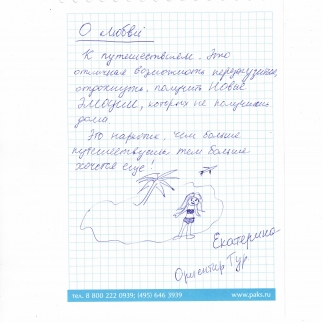 О любви
К путешествиям. Это
отличная возможность перезагрузиться,
отдохнуть, получить новые
эмоции, которых не получишь
дома
Это наркотик, чем больше
путешествуешь тем больше
хочется еще!
Екатерина
Ориентир Тур
тел. 8 800 222 0939; (495) 646 3939
www.paks.ru